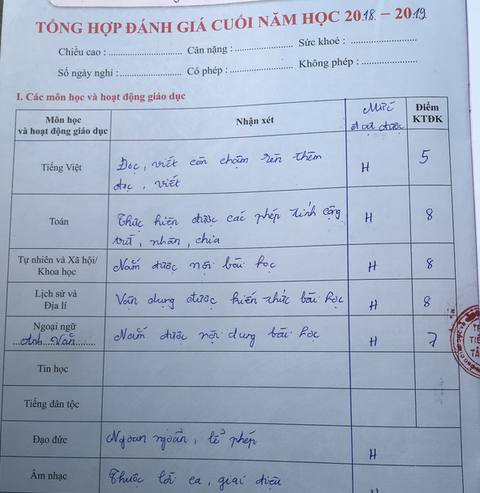 TỔNG HỢP ĐÁNH GIÁ CUỐI NĂM HỌC 2018 - 2019
Chiều cao : Cân nặng : Sức khoẻ :
Số ngày nghỉ : Có phép : Không phép :
I. Các môn học và hoạt động giáo dục
Môn học và hoạt động giáo dục Nhận xét Mức đạt được Điểm KTĐK
Tiếng Việt Đọc, viết còn chậm rèn thêm đọc, viết H 5
Toán Thực hiện được các phép tính cộng trừ, nhân, chia H 8
Tự nhiên và Xã hội/ Khoa học Nắm được nội bài học H 8
Lịch sử và Địa lí Vận dụng được kiến thức bài học H 8
Ngoại ngữ Anh Văn Nắm được nội dung bài học H 7
Tin học
Tiếng dân tộc
Đạo đức Ngoan ngoãn, lễ phép H
Âm nhạc Thuộc lời ca, giai điệu